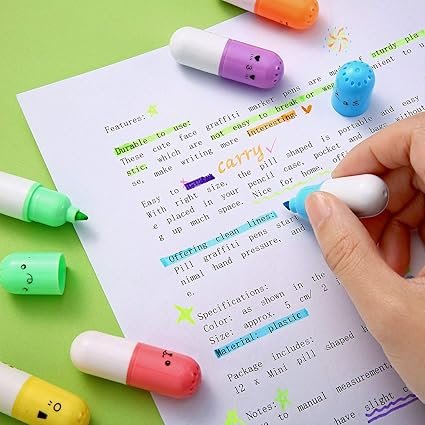 Features:
Durable to use:
These cute face graffiti marker pens are made of sturdy pla
stic, which are not easy to break or wear, convenient to u
se, make writing more interesting.
Easy to carry
With right size, the pill shaped is portable and easy
e placed in your pencil case, pocket and bags without
g up much space. Nice for home, offi
Offering clean lines:
Pill graffiti pens sta
nimal hand pressure, and
Specifications:
Color: as shown in the
Size: approx. 5 cm/ 2 i
Material: plastic
Package includes:
12 x Mini pill shaped h
Notes:
to manual measurement,
have slight c